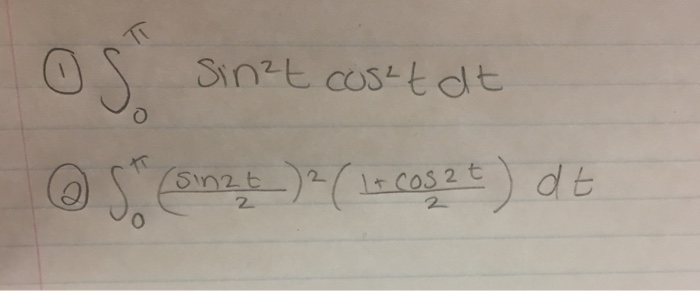 ① ∫₀^π sin²t cos²t dt
② ∫₀^π (sin2t/2)² (1+cos2t/2) dt